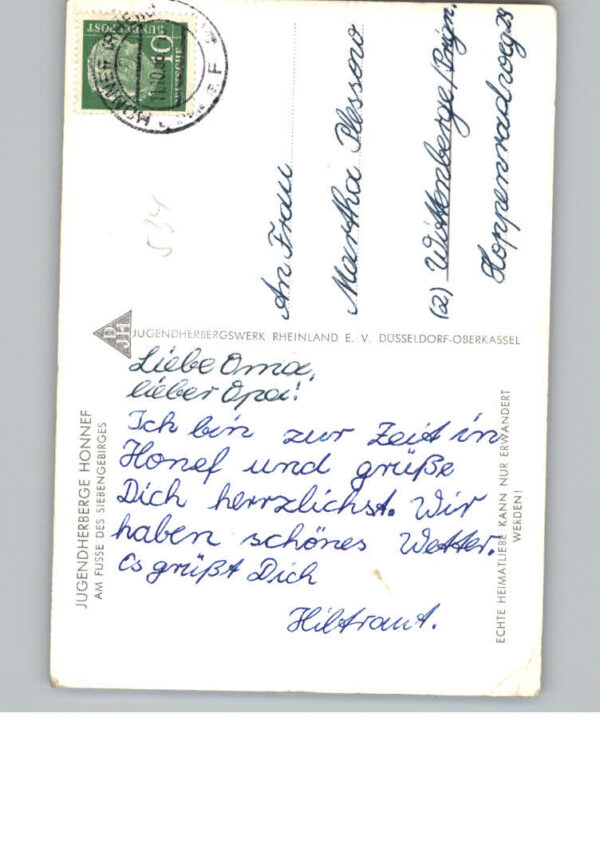 10
DEUTSCHE
BUNDESPOST
HONNEF
An Frau
Martha Plessono
(2) Wittenberge/Prign.
Hoppenradweg 28
DJH
JUGENDHERBERGSWERK RHEINLAND E. V. DÜSSELDORF-OBERKASSEL
Liebe Oma,
lieber Opa!
Ich bin zur Zeit in
Honef und grüße
Dich herrzlichst. Wir
haben schönes Wetter.
Es grüßt Dich
Hiltraut.
JUGENDHERBERGE HONNEF
AM FUSSE DES SIEBENGEBIRGES
ECHTE HEIMATLIEBE KANN NUR ERWANDERT
WERDEN!
534